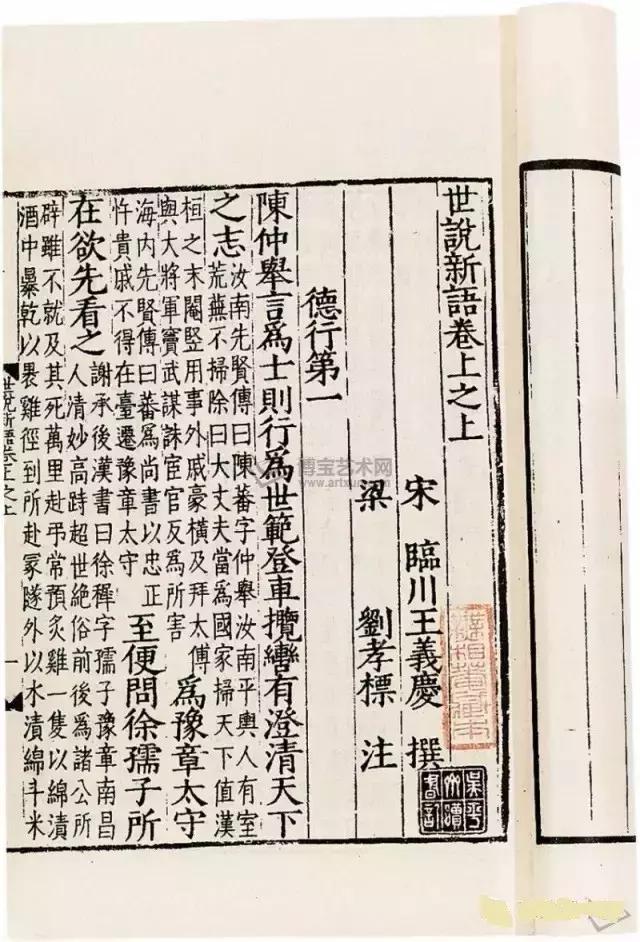 世說新語卷上之上
宋 臨川王義慶 撰
梁 劉孝標 注
德行第一
陳仲舉言爲士則行爲世範登車攬轡有澄清天下
之志
汝南先賢傳曰陳蕃字仲舉汝南平輿人有室
荒蕪不掃除曰大丈夫當爲國家掃天下值漢
桓之末閹豎用事外戚豪橫及拜太傅
與大將軍竇武謀誅宦官反爲所害
爲豫章太守
海内先賢傳曰蕃爲尚書以忠正
忤貴戚不得在臺遷豫章太守
至便問徐孺子所
在欲先看之
謝承後漢書曰徐穉字孺子豫章南昌
人清妙高時超世絕俗前後爲諸公所
辟雖不就及其死萬里赴弔常預炙雞一隻以綿漬
酒中暴乾以裹雞徑到所赴冢隧外以水漬綿斗米
世說新語卷上之上
一
博宝艺术网
www.artxun.com